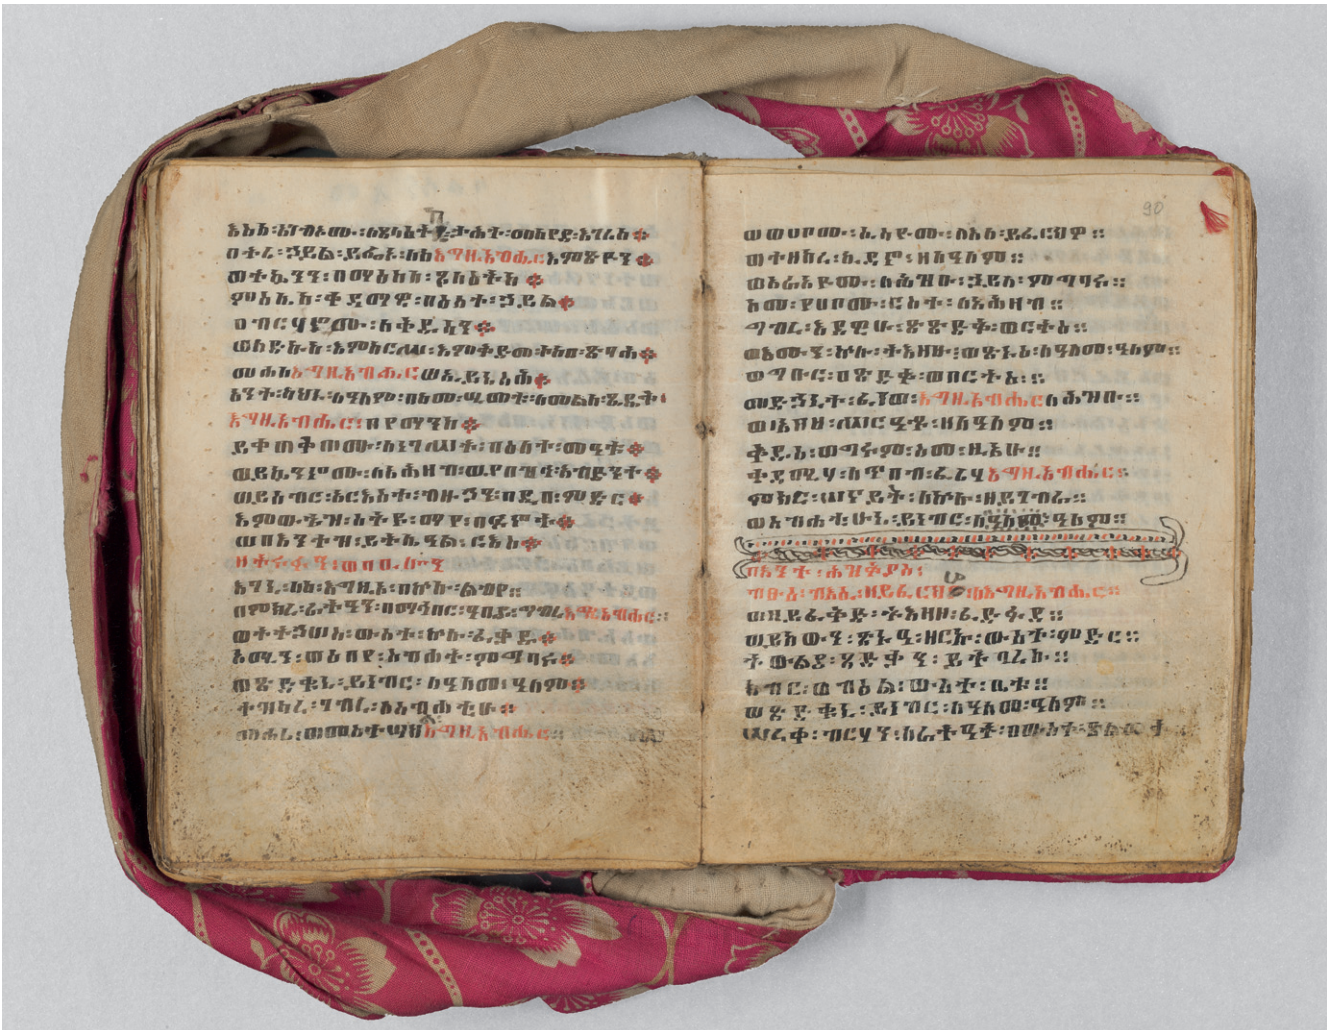 እስከ፡አገብኦሙ፡ለጸላእትከ፡ታሕተ፡መከየደ፡እገሪከ፨
በትረ፡ኃይል፡ይፌኑ፡ለከ፡እግዚአብሔር፡እምጽዮን፨
ወትኴንን፡በማዕከለ፡ጸላእትከ፨
ምስሌከ፡ቀዳማዊ፡በዕለተ፡ኃይል፨
በብርሃኖሙ፡ለቅዱሳን፨
ወለድኩከ፡እምከርሥ፡እምቅድመ፡ኮከበ፡ጽባሕ፨
መሐለ፡እግዚአብሔር፡ወኢይኔስሕ፨
አንተ፡ካህኑ፡ለዓለም፡በከመ፡ሢመቱ፡ለመልከ፡ጼዴቅ፡
እግዚአብሔር፡በየማንከ፨
ይቀጠቅጦሙ፡ለነገሥት፡በዕለተ፡መዓቱ፨
ወይኴንኖሙ፡ለአሕዛብ፡ወያበዝኅ፡አብድንተ፨
ወይሰብር፡አርእስተ፡ብዙኃን፡በዲበ፡ምድር፨
እምውሒዝ፡ሰትየ፡ማየ፡በፍኖት፨
ወበእንተዝ፡ይትሌዓል፡ርእስ፨
እገኒ፡ለከ፡እግዚኦ፡በኵሉ፡ልብየ።
በምክረ፡ራትዓን፡በማኅበር፡ዓቢይ፡ግብረ፡እግዚአብሔር።
ወተኃሠሠ፡ውስተ፡ኵሉ፡ፈቃዱ፨
አሚን፡ወዕበየ፡ስብሐት፡ምግባሩ፨
ወጽድቁኒ፡ይነብር፡ለዓለመ፡ዓለም፨
ተዝካረ፡ገብረ፡ለስብሐቲሁ፨
መሐሪ፡ወመስተሣህል፡እግዚአብሔር።
90
ወወሀቦሙ፡ሲሳዮሙ፡ለእለ፡ይፈርህዎ።
ወተዘከረ፡ኪዳኖ፡ዘለዓለም።
ወአርአዮሙ፡ለሕዝቡ፡ኃይለ፡ምግባሩ።
ከመ፡የሀቦሙ፡ርስተ፡ለአሕዛብ።
ግብረ፡እደዊሁ፡ጽድቅ፡ወርትዕ።
ወእሙን፡ኵሉ፡ትእዛዙ፡ወጽኑዕ፡ለዓለመ፡ዓለም።
ወግቡር፡በጽድቅ፡ወበርትዕ።
መድኃኒተ፡ፈነወ፡እግዚአብሔር፡ለሕዝቡ።
ወአዘዘ፡ሥርዓቶ፡ዘለዓለም።
ቅዱስ፡ወግሩም፡ስሙ፡ዚአሁ።
ቀዳሚሃ፡ለጥበብ፡ፈሪሃ፡እግዚአብሔር።
ምክር፡ሠናይት፡ለኵሉ፡ዘይገብራ።
ወስብሐቲሁኒ፡ይነብር፡ለዓለመ፡ዓለም።
በእንተ፡ሕዝቅያስ፡
ብፁዕ፡ብእሲ፡ዘይፈርህ፡ለእግዚአብሔር።
ወዘይፈቅድ፡ትእዛዞ፡ፈድፋደ።
ወይከውን፡ጽኑዓ፡ዘርኡ፡ውስተ፡ምድር።
ትውልደ፡ጻድቃን፡ይትባረክ።
ክብር፡ወብዕል፡ውስተ፡ቤቱ።
ወጽድቁኒ፡ይነብር፡ለዓለመ፡ዓለም።
ሠረቀ፡ብርሃን፡ለራትዓን፡በውስተ፡ጽልመት